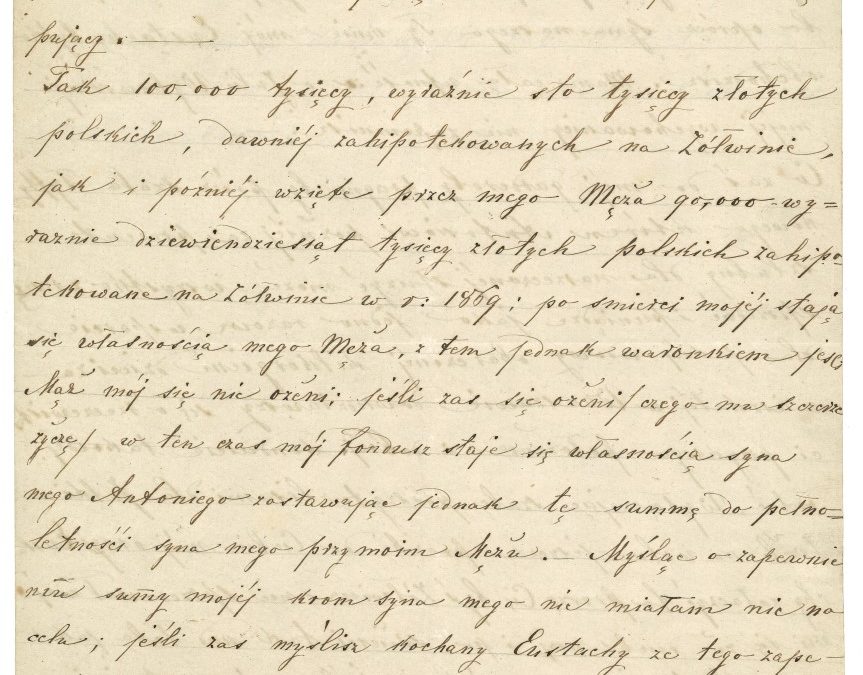 pujący. —
Tak 100,000 tysięcy, wyraźnie sto tysięcy złotych
polskich, dawniéj zahipotekowanych na Żółwinie,
jak i późniéj wzięte przez mego Męża 90,000 wy=
raznie dziewiendziesiąt tysięcy złotych polskich zahipo-
tekowane na Żółwinie w r: 1869; po smierci mojéj stają
się własnością mego Męża, z tem jednak waronkiem jeśl
Mąż mój się nie ożeni; jeśli zas się ożeni / czego mu szczerze
życzę / w ten czas mój fondusz staje się własnością syna
mego Antoniego zostawując jednak tę summę do pełno=
letności syna mego przy moim Mężu. — Myśląc o zapewnie
niu summy mojéj krom syna mego nic miałam nic na
celu; jeśli zas myślisz kochany Eustachy ze tego zape-